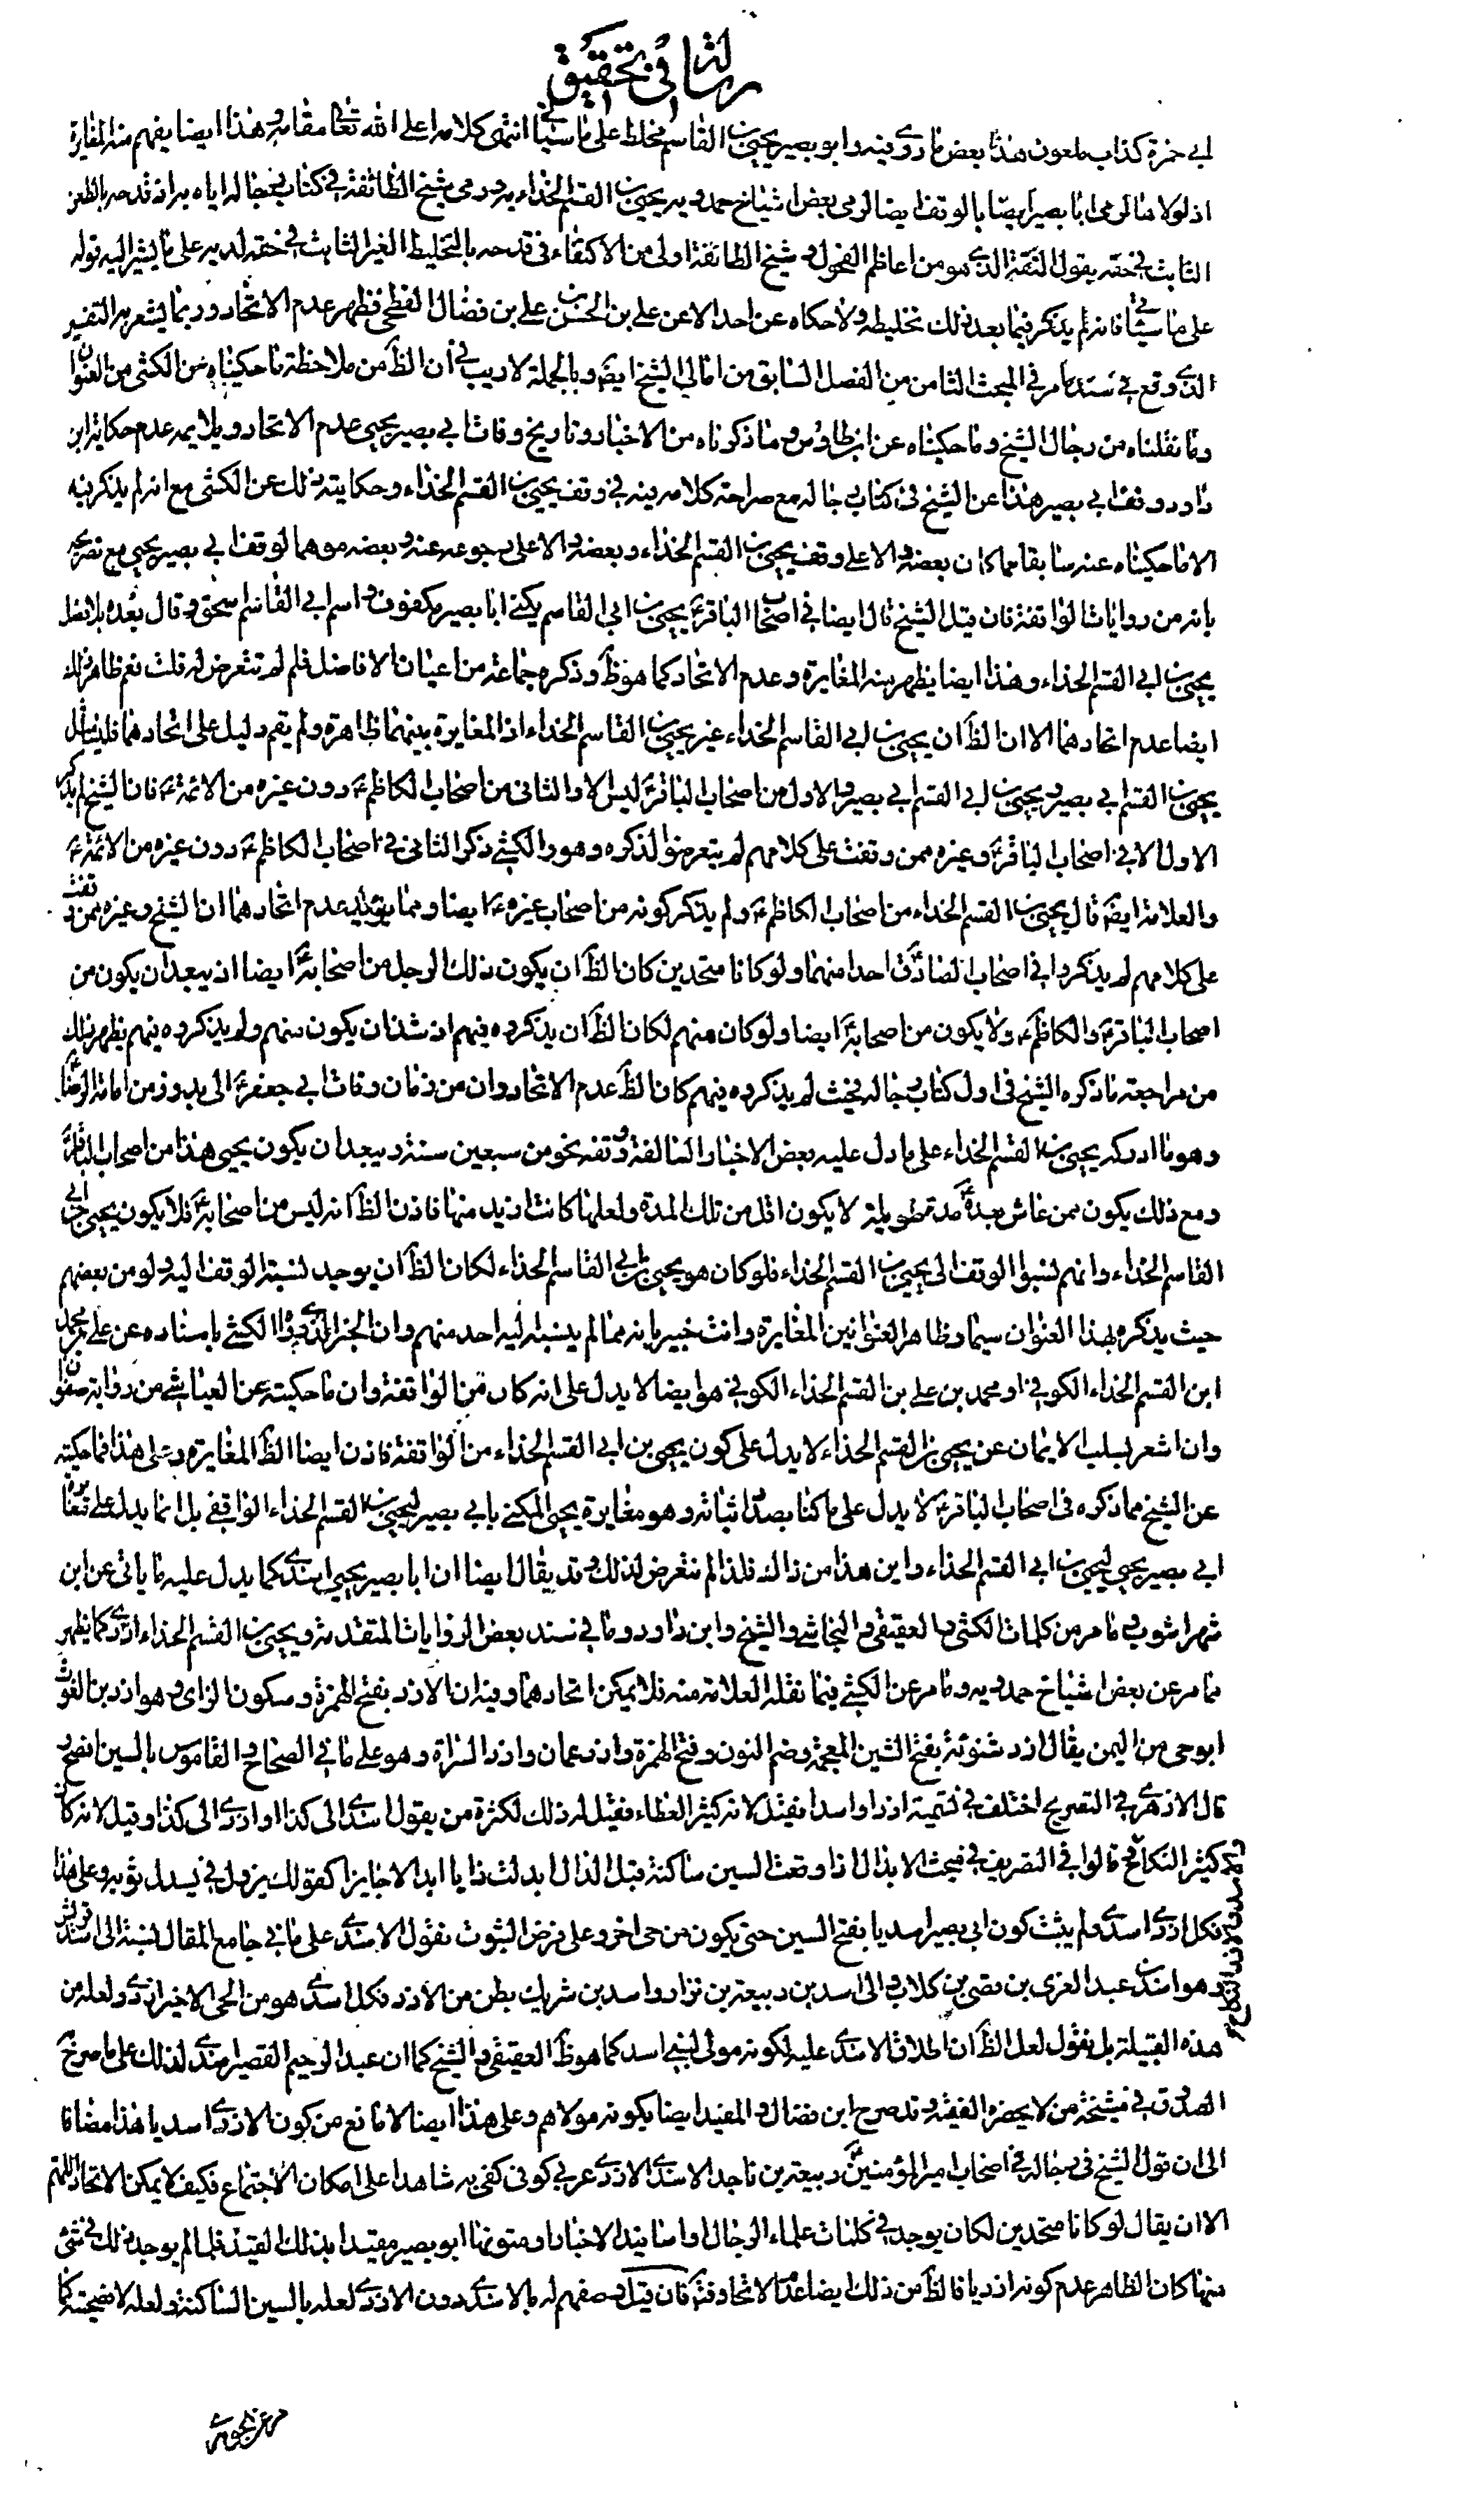 رسالة في تحقيق
ابي حمزة كذاب ملعون هذا بعض ما روي فيه وابو بصير يحيى بن القاسم مخلط على ما سيأتي انتهى كلامه اعلى الله تعالى مقامه وهذا ايضا يفهم منه المغايرة
اذ لولاها لرمى ابا بصير ايضا بالوقف ايضا لرمي بعض اشياخ حمدويه يحيى بن القسم الحذاء به ورمي شيخ الطائفة في كتاب رجاله اياه به اذ قدحه بالطعن
الثابت في حقه بقول الثقة الذي هو من اعاظم الفحول وشيخ الطائفة اولى من الاكتفاء في قدحه بالتخليط الغير الثابت في حقه لديه على ما يشير اليه قوله
على ما سيأتي فانه لم يذكر فيما بعد ذلك تخليطه ولا حكاه عن احد الا عن علي بن الحسن بن علي بن فضال الفطحي فظهر عدم الاتحاد وربما يشعر به التقييد
الذي وقع في سند ما مر في المبحث الثامن من الفصل السابق من امالي الشيخ ايضا وبالجملة لا ريب في ان الظ من ملاحظة ما حكيناه من الكشي من العنوان
وما نقلناه من رجال الشيخ وما حكيناه عن ابن طاوس وما ذكرناه من الاخبار وتاريخ وفات ابي بصير يحيى عدم الاتحاد ويلايمه عدم حكاية ابن
داود وقف ابي بصير هذا عن الشيخ في كتاب رجاله مع صراحة كلامه فيه في وقف يحيى بن القسم الحذاء وحكايته ذلك عن الكشي مع انه لم يذكر فيه
الا ما حكيناه عنه سابقا مما كان بعضه دالا على وقف يحيى بن القسم الحذاء وبعضه دالا على رجوعه عنه وبعضه موهما لوقف ابي بصير يحيى مع تصريحه
بانه من روايات الواقفة فان قيل الشيخ قال ايضا في اصحاب الباقرع يحيى بن ابي القاسم يكنى ابا بصير مكفوف واسم ابي القاسم اسحق وقال بعده بلا فصل
يحيى بن ابي القسم الحذاء وهذا ايضا يظهر منه المغايرة وعدم الاتحاد كما هو ظ وذكره جماعة من اعيان الافاضل فلم لم تتعرض له قلت نعم ظاهر ذلك
ايضا عدم اتحادهما الا ان الظ ان يحيى بن ابي القاسم الحذاء غير يحيى بن القاسم الحذاء اذ المغايرة بينهما ظاهرة ولم يقم دليل على اتحادهما فليتأمل
يحيى بن القسم ابي بصير ويحيى بن ابي القسم ابي بصير والاول من اصحاب الباقرع ليس الا والثاني من اصحاب الكاظم ع دون غيره من الائمة ع فان الشيخ لم يذكر
الاول الا في اصحاب الباقرع وغيره ممن وقفت على كلامهم لم يتعرضوا لذكره وهو والكشي ذكر الثاني في اصحاب الكاظم ع دون غيره من الائمة ع
والعلامة ايضا قال يحيى بن القسم الحذاء من اصحاب الكاظم ع ولم يذكر كونه من اصحاب غيره ع ايضا ومما يؤيد عدم اتحادهما ان الشيخ وغيره ممن وقفت
على كلامهم لم يذكروا في اصحاب الصادق ع احدا منهما ولو كانا متحدين كان الظ ان يكون ذلك الرجل من اصحابه ع ايضا اذ يبعد ان يكون من
اصحاب الباقرع والكاظم ع ولا يكون من اصحابه ع ايضا ولو كان منهم لكان الظ ان يذكروه فيهم اذ شذ ان يكون منهم ولم يذكروه فيهم يظهر ذلك
من مراجعة ما ذكره الشيخ في اول كتاب رجاله فحيث لم يذكروه فيهم كان الظ عدم الاتحاد وان من زمان وفات ابي جعفرع الى بدو زمن امامة الرضا ع
وهو ما ادركه يحيى بن القسم الحذاء على ما دل عليه بعض الاخبار السالفة ووقفه نحو من سبعين سنة ويبعد ان يكون يحيى هذا من اصحاب الباقرع
ومع ذلك يكون ممن عاش بعده ع مدة طويلة لا يكون اقل من تلك المدة ولعلها كانت ازيد منها فاذن الظ انه ليس من اصحابه ع فلا يكون يحيى بن ابي
القاسم الحذاء وانهم نسبوا الوقف الى يحيى بن القسم الحذاء فلو كان هو يحيى بن ابي القاسم الحذاء لكان الظ ان يوجد نسبة الوقف اليه ولو من بعضهم
حيث يذكره بهذا العنوان سيما وظاهر العنوانين المغايرة وانت خبير بانه مما لم ينسبه اليه احد منهم وان الخبر الذي رواه الكشي باسناده عن علي بن محمد
ابن القسم الحذاء الكوفي او محمد بن علي بن القسم الحذاء الكوفي هو ايضا لا يدل على انه كان من الواقفة وان ما حكيته عن العياشي من رواية صفوان
وان اشعر بسلب الايمان عن يحيى بن القسم الحذاء لا يدل على كون يحيى بن ابي القسم الحذاء من الواقفة فاذن ايضا الظ المغايرة وعلى هذا فما حكيته
عن الشيخ مما ذكره في اصحاب الباقرع لا يدل على ما كنا بصدد اثباته وهو مغايرة يحيى المكنى بابي بصير ليحيى بن القسم الحذاء الواقفي بل انما يدل على تغاير
ابي بصير يحيى ليحيى بن ابي القسم الحذاء واين هذا من ذاك فلذا لم نتعرض لذلك وقد يقال ايضا ان ابا بصير يحيى اسدي كما يدل عليه ما ياتي عن ابن
شهراشوب وما مر من كلمات الكشي والعقيقي والنجاشي والشيخ وابن داود وما في سند بعض الروايات المتقدمة ويحيى بن القسم الحذاء ازدي كما يظهر
مما مر عن بعض اشياخ حمدويه وما مر عن الكشي فيما نقله العلامة منه فلا يمكن اتحادهما وفيه ان الازد بفتح الهمزة وسكون الزاي وهو ازد بن الغوث
ابو حي من اليمن يقال ازد شنوئة بفتح الشين المعجمة وضم النون وفتح الهمزة وازد عمان وازد السراة وهو على ما في الصحاح والقاموس بالسين افصح و
قال الازهري في التصريح اختلف في تسمية ازد او اسد فقيل لانه كثير العطاء فقيل له ذلك لكثرة من يقول اسدى الى كذا او ازدى الى كذا وقيل لانه كان
كثير النكاح قالوا في التصريف في مبحث الابدال اذا وقعت السين ساكنة قبل الدال ابدلت زايا ابدالا جايزا كقولك يزدل في يسدل ثوبه وعلى هذا
فكل ازدي اسدي ولم يثبت كون ابي بصير اسديا بفتح السين حتى يكون من حي اخر وعلى فرض الثبوت نقول الاسدي على ما في جامع المقال نسبة الى اسد قريش
وهو اسد بن عبد العزى بن قصي بن كلاب والى اسد بن ربيعة بن نزار واسد بن شريك بطن من الازد فكل اسدي هو من الحي الاخير ازدي ولعله من
هذه القبيلة بل نقول لعل الظ ان اطلاق الاسدي عليه لكونه مولى لبني اسد كما هو ظ العقيقي والشيخ كما ان عبد الرحيم القصير اسدي لذلك على ما صرح
الصدوق في مشيخة من لا يحضره الفقيه وقد صرح ابن فضال والمفيد ايضا بكونه مولاهم وعلى هذا ايضا لا مانع من كون الازدي اسديا هذا مضافا
الى ان قول الشيخ في رجاله في اصحاب امير المؤمنين ع ربيعة بن ناجد الاسدي الازدي عربي كوفي كفى به شاهدا على امكان الاجتماع فكيف لا يمكن الاتحاد اللهم
الا ان يقال لو كانا متحدين لكان يوجد في كلمات علماء الرجال او اسانيد الاخبار او متونها ابو بصير مقيدا بذلك القيد فلما لم يوجد ذلك في شئ
منها كان الظاهر عدم كونه ازديا فالظ من ذلك ايضا عدم الاتحاد فتدبر فان قيل وصفهم له بالاسدي دون الازدي لعله بالسين الساكنة ولعله لافصحيته كما